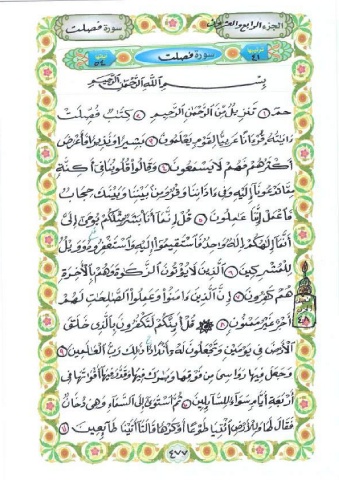 الجزء الرابع والعشرون
سورة فصلت
سورة فصلت
بسم الله الرحمن الرحيم
حم ١ تنزيل من الرحمن الرحيم ٢ كتاب فصلت
ءايته قرءانا عربيا لقوم يعلمون ٣ بشيرا ونذيرا فأعرض
أكثرهم فهم لا يسمعون ٤ وقالوا قلوبنا في أكنة
مما تدعونا إليه وفي ءاذاننا وقر ومن بيننا وبينك حجاب
فاعمل إننا عملون ٥ قل إنما أنا بشر مثلكم يوحى إلي
أنما إلهكم إله واحد فاستقيموا إليه واستغفروه وويل
للمشركين ٦ الذين لا يؤتون الزكوة وهم بالآخرة
هم كفرون ٧ إن الذين ءامنوا وعملوا الصلحت لهم
أجر غير ممنون ٨ قل أئنكم لتكفرون بالذي خلق
الأرض في يومين وتجعلون له أندادا ذلك رب العلمين ٩
وجعل فيها روسي من فوقها وبرك فيها وقدر فيها أقواتها في
أربعة أيام سواء للسائلين ١٠ ثم استوى إلى السماء وهي دخان
فقال لها وللأرض ائتيا طوعا أو كرها قالتا أتينا طائعين ١١
٤٧٧